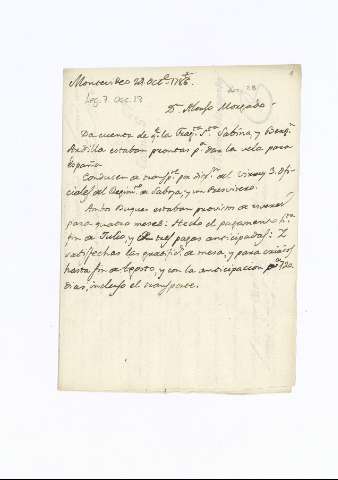 Montevideo 22 Octe. 1786.
Leg. 7 Doc. 13
D.n Alonso Morgado.
Da cuenta de q.e la Frag.ta S.ta Sabina, y Berg.n
Ardilla estaban prontas p.a dar la vela para
España
Conducen de transp.te por disp.n del Virrey 3. Ofi-
ciales del Regim.to de Saboya, y un Presvitero.
Ambos Buques estaban provistos de viveres
para quatro meses: Hecho el pagamento h.ta
fin de Julio, y tres pagas anticipadas: Y
satisfechas las gratific.s de mesa, y para criados
hasta fin de Agosto, y con la anticipacion 120.
dias, incluso el transporte.